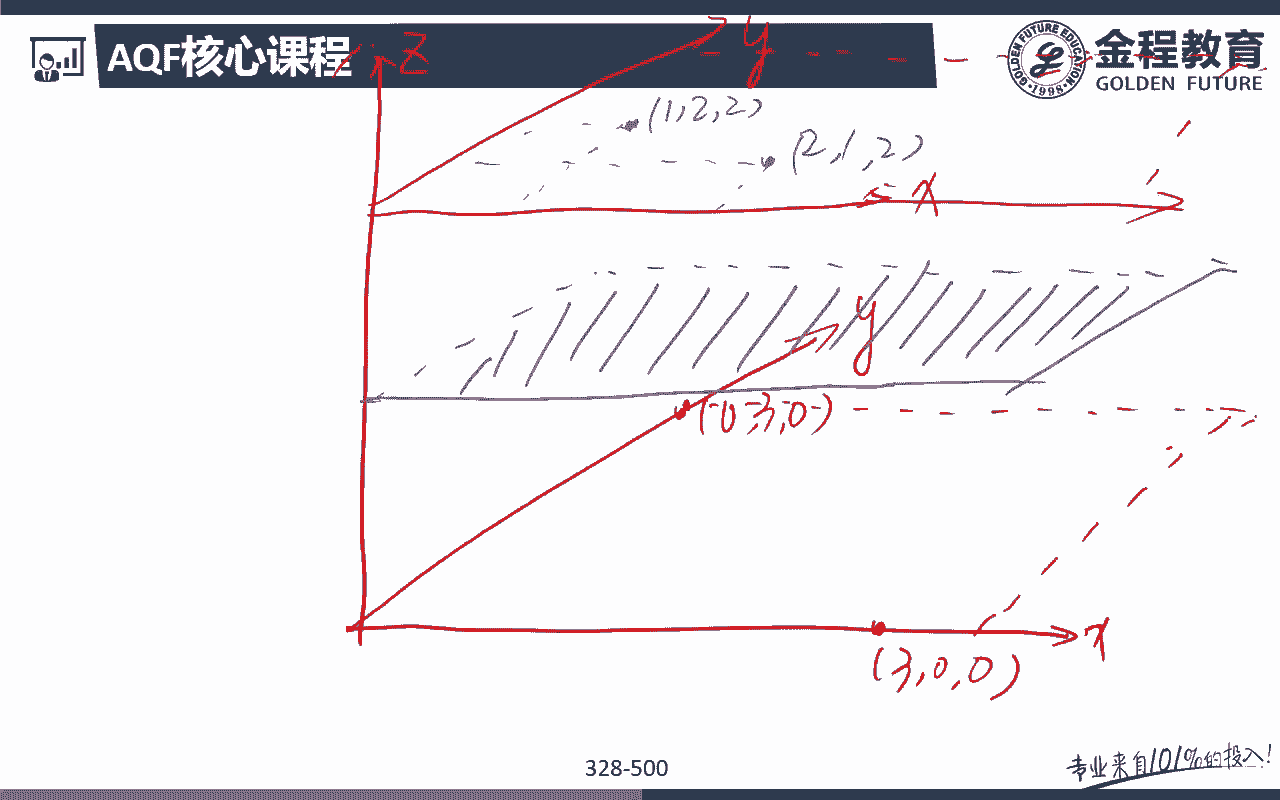 AQF核心课程
z
y
GOLDEN FUTURE EDUCATION
·1998·
金程教育
GOLDEN FUTURE
(1,2,2)
(2,1,2)
x
y
(0,3,0)
x
(3,0,0)
328-500
专业来自101%的投入!